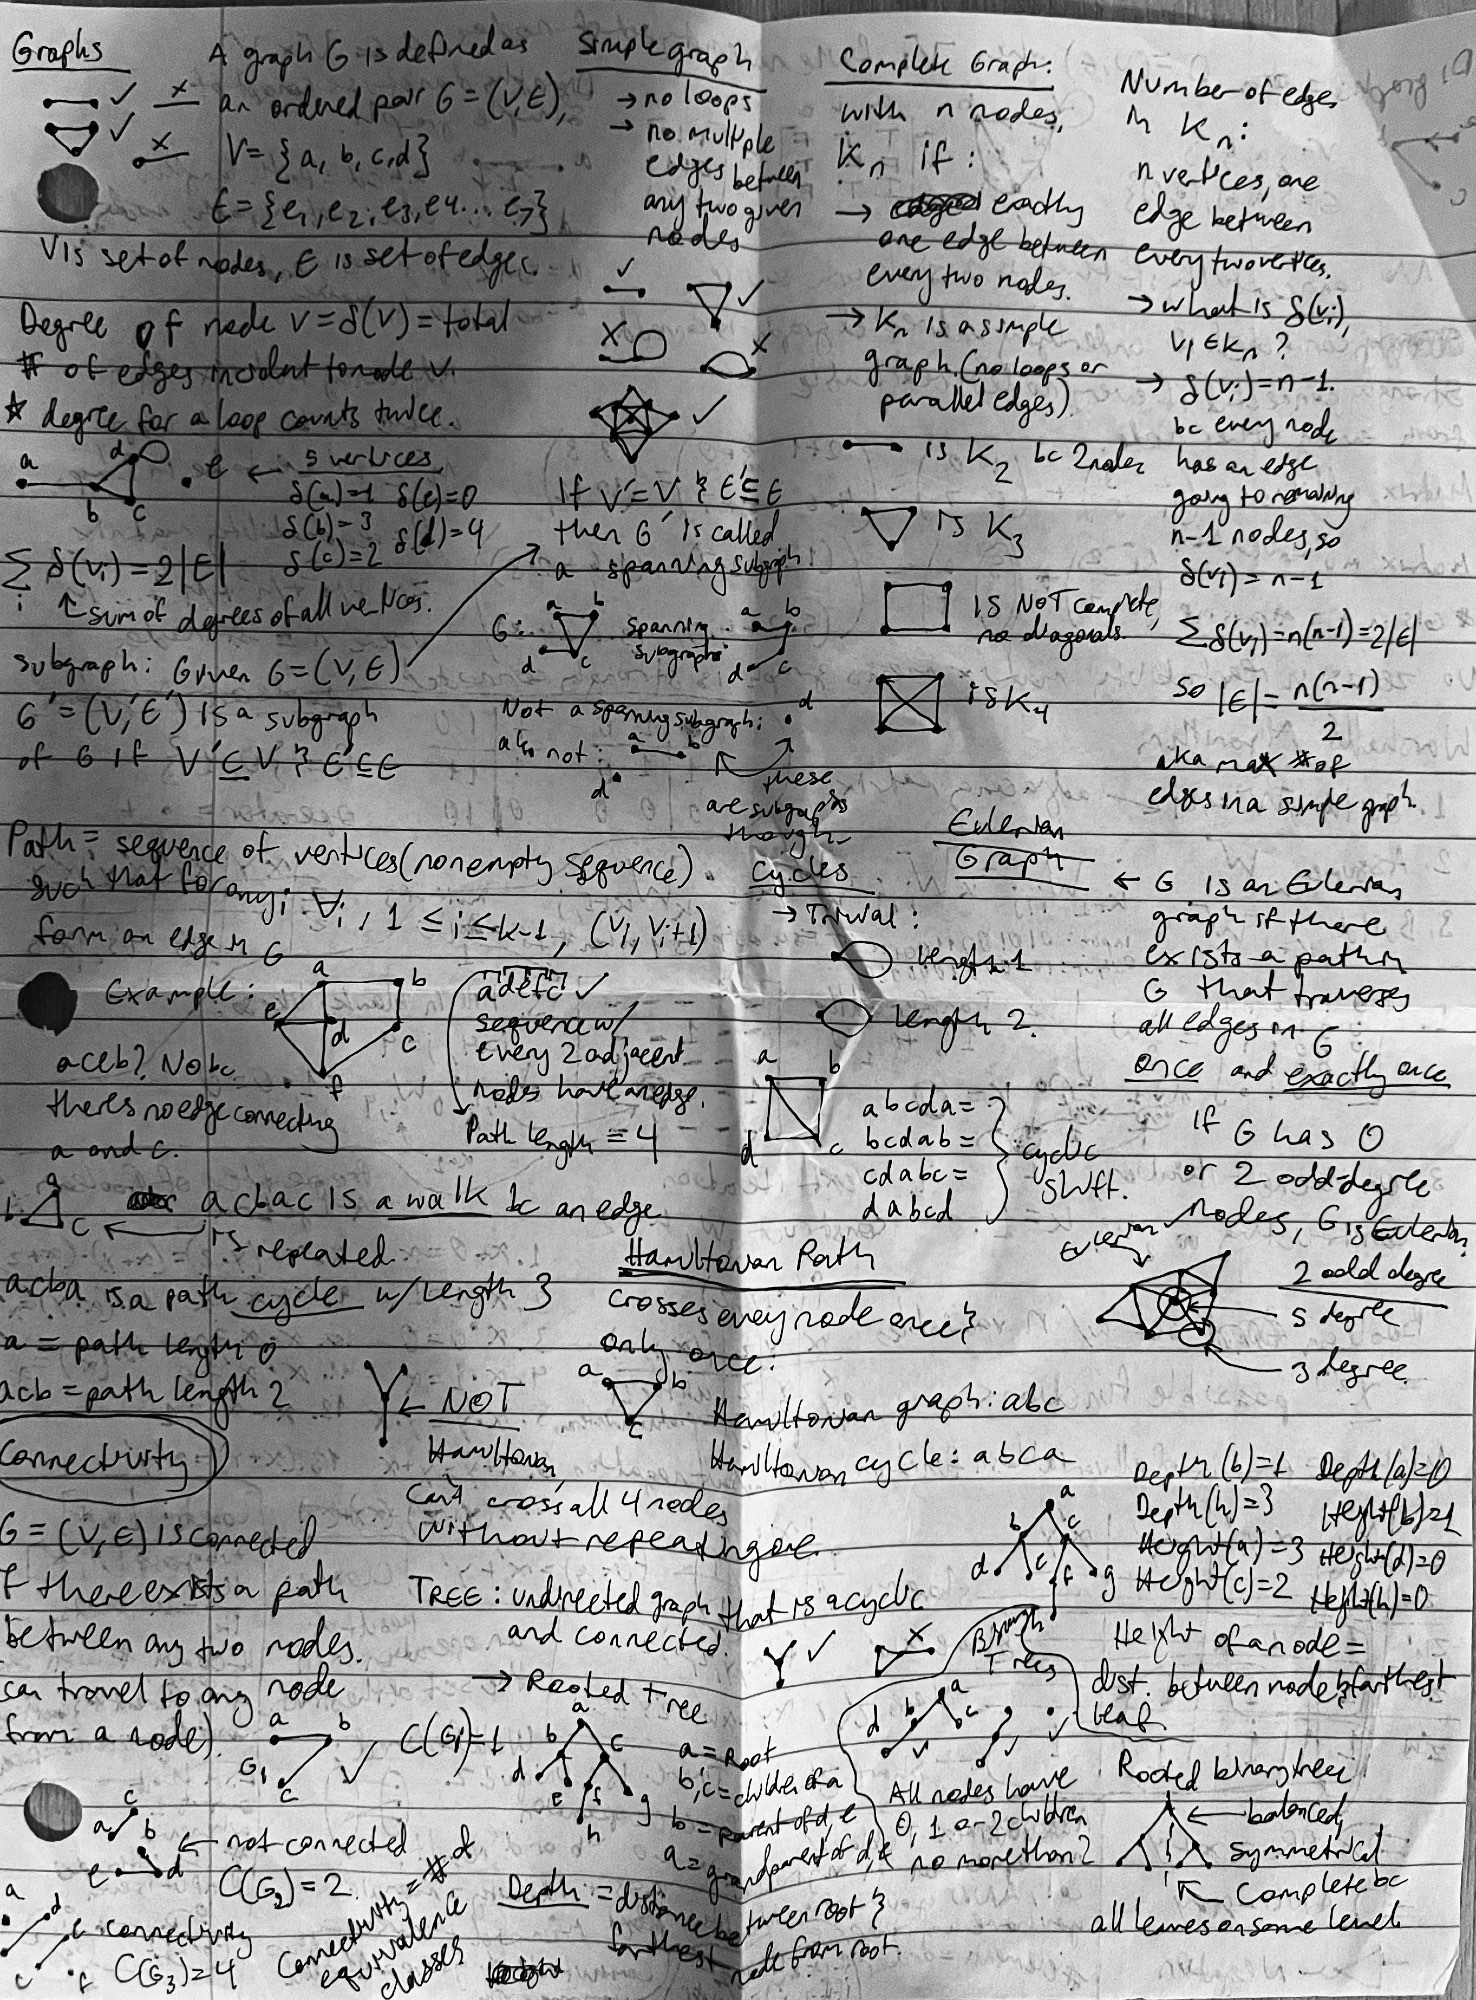 Graphs
A graph G is defined as
an ordered pair G = (V, E),
V = {a, b, c, d}
E = {e1, e2, e3, e4 ... e7}
V is set of nodes, E is set of edges.
Degree of node v = δ(v) = total
# of edges incident to node v.
☆ degree for a loop counts twice.
a
d
b
c
e
← 5 vertices
δ(a)=1 δ(e)=0
δ(b)=3
δ(c)=2 δ(d)=4
∑ δ(vi) = 2|E|
i
↑ sum of degrees of all vertices.
subgraph: Given G = (V, E)
G' = (V', E') is a subgraph
of G if V' ⊆ V & E' ⊆ E
Simple graph
→ no loops
→ no multiple
edges between
any two given
nodes
If V' = V & E' ⊆ E
then G' is called
a spanning subgraph.
G:
a b
d c
spanning
subgraph:
a b
d c
Not a spanning subgraph: d
also not: a b
d
these
are subgraphs
though
Complete Graph:
with n nodes,
Kn if:
→ exactly
one edge between
every two nodes.
→ Kn is a simple
graph. (no loops or
parallel edges)
is K2 bc 2 nodes
is K3
is NOT complete,
no diagonals.
is K4
Number of edges
in Kn:
n vertices, one
edge between
every two vertices.
→ what is δ(vi),
vi ∈ Kn?
→ δ(vi) = n-1.
bc every node
has an edge
going to remaining
n-1 nodes, so
δ(vi) = n-1
∑ δ(vi) = n(n-1) = 2|E|
so |E| = n(n-1)
2
aka max # of
edges in a simple graph.
Path = sequence of vertices (nonempty sequence).
such that for any i ∀i, 1 ≤ i ≤ k-1, (vi, vi+1)
form an edge in G
Example:
a b
e d
c
f
aceb? No bc
theres no edge connecting
a and c.
adefc ✓
sequence w/
every 2 adjacent
nodes have an edge.
Path length = 4
a
b c
acbac is a walk bc an edge
is repeated.
acba is a path cycle w/ length 3
a = path length 0
acb = path length 2
Cycles
→ Trivial:
length 1
length 2.
a b
d c
abcda =
bcdab =
cdabc =
dabcd
cyclic
shift.
Eulerian
Graph
← G is an Eulerian
graph if there
exists a path in
G that traverses
all edges in G
once and exactly once
if G has 0
or 2 odd-degree
nodes, G is Eulerian.
Eulerian
2 odd degree
5 degree
3 degree
Hamiltonian Path
crosses every node once &
only once.
a b
c
Hamiltonian graph: abc
Hamiltonian cycle: abca
← NOT
Hamiltonian,
can't cross all 4 nodes
without repeating one.
Connectivity
G = (V, E) is connected
if there exists a path
between any two nodes.
can travel to any node
from a node).
a b
G1
c
C(G1)=1
c
a b
e d
← not connected
C(G2) = 2.
a
d
e
c f
connectivity
C(G3)=4
Connectivity = # of
equivalence
classes
TREE: undirected graph that is acyclic
and connected.
→ Rooted Tree
a
b c
d e f g
h
a = Root
b, c = children of a
b = parent of d, e
a = grandparent of d, e
Depth = distance between root &
farthest
node from root.
Binary
Trees
a
b
d c
All nodes have
0, 1 or 2 children
no more than 2
a
b c
d f g
Depth(b)=1 Depth(a)=0
Depth(h)=3 Height(b)=1
Height(a)=3 Height(d)=0
Height(c)=2 Height(h)=0
Height of a node =
dist. between node & farthest
leaf
Rooted binary tree
← balanced,
symmetrical
Complete bc
all leaves on same level